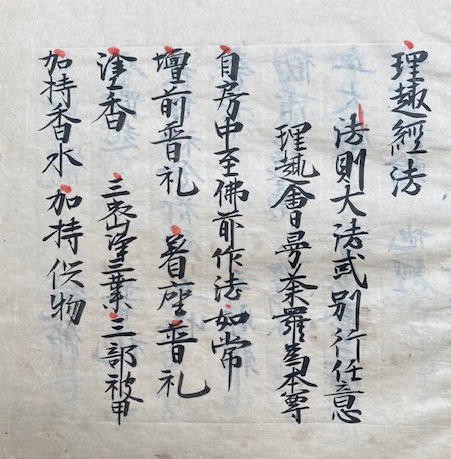 理趣經法
法則大法或別行任意
理趣會曼荼羅為本尊
自房中至佛前作法如常
壇前普礼 着座普礼
塗香 三密淨三業三部被甲
加持香水 加持供物